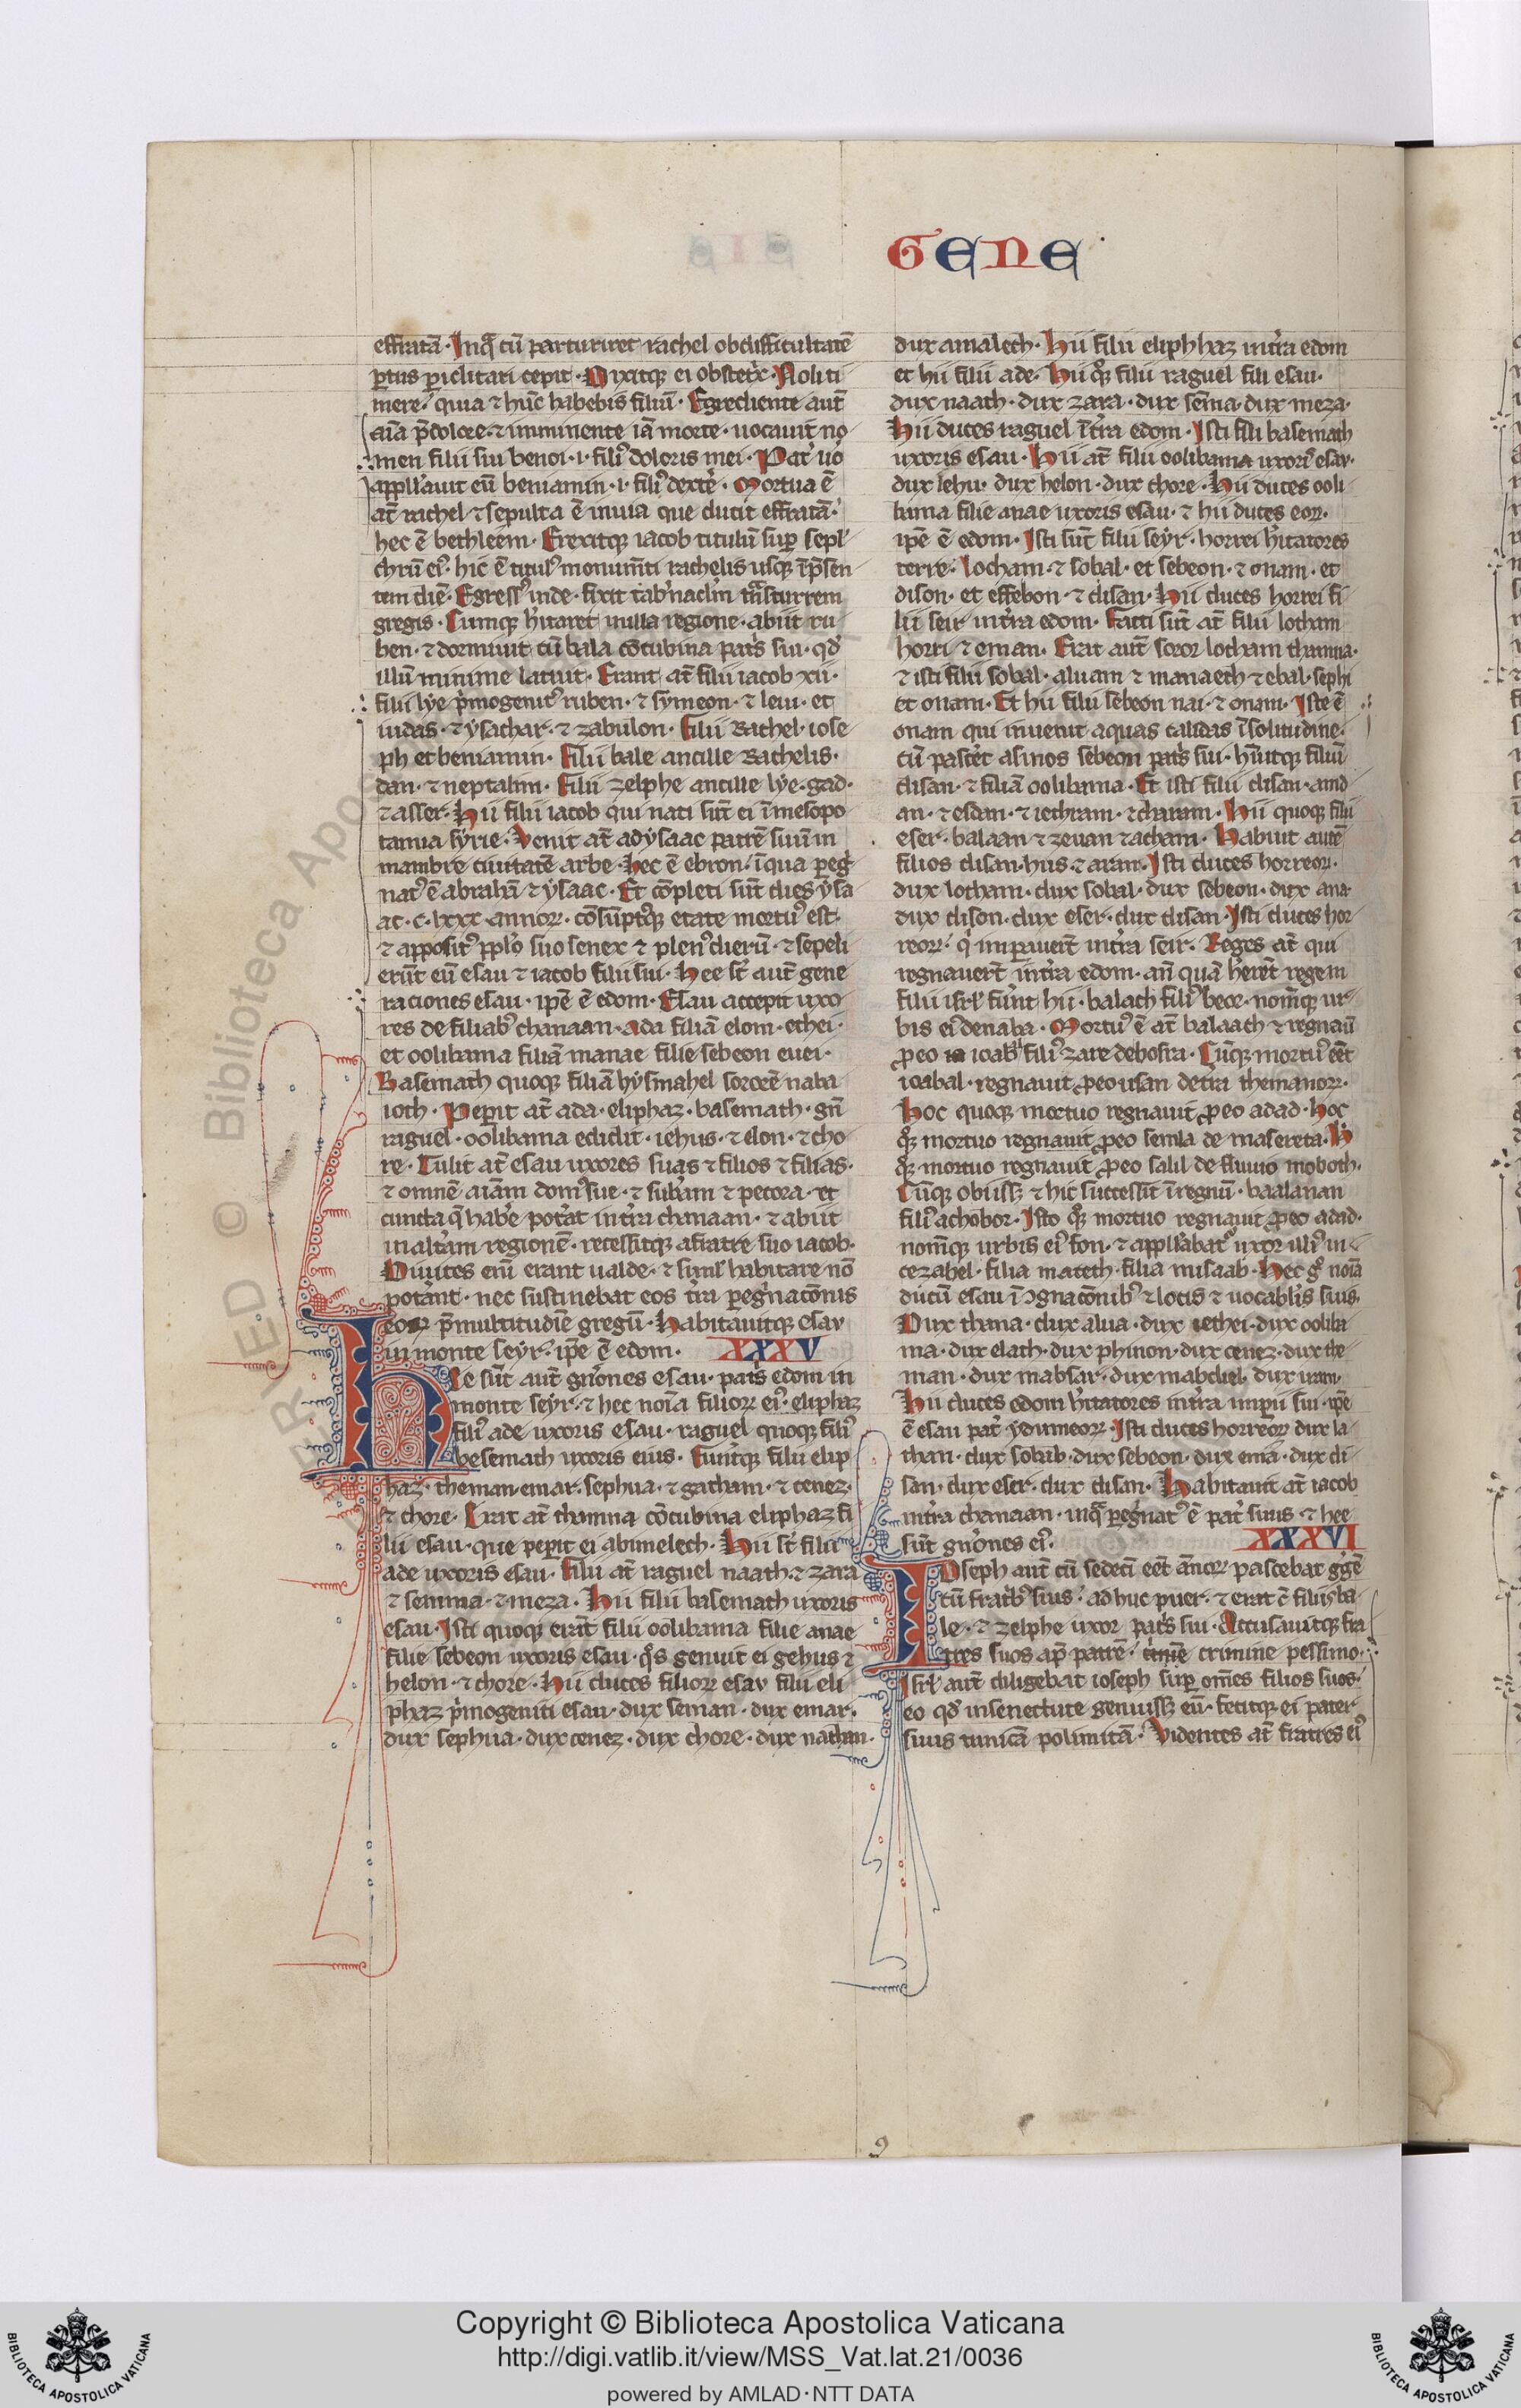 GENE
effratā· Inq̄ cū parturiret rachel ob difficultatē
ꝑtus ꝑiclitari cepit· Dixitqꝫ ei obstetˈx· Noli ti
mere· quia ⁊ hūc habebis filiū· Egrediente aut̄
aīa p̄ dolore ⁊ imminente iā morte· uocauit no
men filii sui benoi· i· filiꝰ doloris mei· Patˈ uo
appllˈauit eū beniamin· i· filiꝰ dextˈe· Mortua ē
at̄ rachel ⁊ sepulta ē in uia que ducit effratā·
hec ē bethleem· Erexitqꝫ iacob titulū suꝑ sepl
chrū eiꝰ· hic ē titulꝰ monumˈti rachelis usqꝫ ī p̄sen
tem diē· Egressꝰ inde· fixit tabˈnaclˈm tˈnsturrem
gregis· Cumqꝫ hˈitaret in illa regione· abiit ru
ben· ⁊ dormiuit cū bala cōcubina patˈs sui· qđ
illū minime latuit· Erant at̄ filii iacob xii·
filii lye pˈmogenitꝰ ruben· ⁊ symeon· ⁊ leui· et
iudas· ⁊ ysachar· ⁊ zabulon· Filii Rachel· iose
ph et beniamin· Filii bale ancille Rachelis·
dan· ⁊ neptalim· Filii zelphe ancille lye· gad·
⁊ asser· Hii filii iacob qui nati sūt ei ī mesopo
tamia syrie· Venit at̄ ad ysaac patrē suū in
mambre ciuitatē arbe· hec ē ebron· ī qua ꝑegˈ
natꝰ ē abrahā ⁊ ysaac· Et cōpleti sūt dies ysa
ac· c· lxxx annoꝝ· cōsūptˈqꝫ etate mortuꝰ est·
⁊ appositꝰ pplˈo suo senex ⁊ plenꝰ dierū· ⁊ sepeli
erūt eū esau ⁊ iacob filii sui· Hee st̄ aut̄ gene
raciones esau· ipē ē edom· Esau accepit uxo
res de filiabꝰ chanaan· ada filiā elom· ethei·
et oolibama filiā manae filie sebeon euei·
Basemath quoqꝫ filiā hysmahel sororē naba
ioth· Peꝑit at̄ ada· eliphaz· basemath· gn̄
raguel· oolibama edidit· iehus· ⁊ elon· ⁊ cho
re· Tulit at̄ esau uxores suas ⁊ filios ⁊ filias·
⁊ omnē aīam domꝰ sue· ⁊ subˈam ⁊ pecora· et
cuncta q̄ habˈe potˈat in tˈra chanaan· ⁊ abiit
in altˈam regionē· recessitqꝫ a fratre suo iacob·
Diuites eni erant ualde· ⁊ simlˈ habitare nō
potˈant· nec sustinebat eos tˈra ꝑegˈnacōnis
eoꝝ p̄ multitudiē gregū· Habitauitqꝫ esau
in monte seyr· ipē ē edom· XXXV
Hee sūt aut̄ gnˈones esau· patˈs edom in
monte seyr· ⁊ hec noīa filioꝝ eiꝰ· eliphaz
filiꝰ ade uxoris esau· raguel quoqꝫ filiꝰ
besemath uxoris eius· Fuūtqꝫ filii elip
haz· theman emar· sephua· ⁊ gatham· ⁊ cenez·
⁊ chore· Erat at̄ thamna cōcubina eliphaz fi
lii esau· que peꝑit ei abimelech· Hii st̄ filii
ade uxoris esau· Filii at̄ raguel naath· ⁊ zara
⁊ semma· ⁊ meza· Hii filii basemath uxoris
esau· Isti quoqꝫ erāt filii oolibama filie anae
filie sebeon uxoris esau· qˈs genuit ei gehus ⁊
helon· ⁊ chore· Hii duces filioꝝ esau filii eli
phaz pˈmogeniti esau· dux seman· dux emar·
dux sephua· dux cenez· dux chore· dux nathan·
dux amalech· Hii filii eliphhaz in tˈra edom
et hii filii ade· Hii qˈꝫ filii raguel fili esau·
dux naath· dux zara· dux sēma· dux meza·
Hii duces raguel ī tˈra edom· Isti filii basemath
uxoris esau· Hii at̄ filii oolibama uxorꝭ esau·
dux iehu· dux helon· dux chore· Hii duces ooli
bama filie anae uxoris esau· ⁊ hii duces eoꝝ·
ipē ē edom· Isti sūt filii seyr· horrei hˈitatores
terre· Locham· ⁊ sobal· et sebeon· ⁊ onam· et
dison· et effebon· ⁊ disan· Hii duces horrei fi
lii seir in tˈra edom· Facti sūt at̄ filii lotham
horri ⁊ eman· Erat aut̄ soror lotham thamna·
⁊ isti filii sobal· aluam ⁊ manaeth ⁊ ebal· sephi
et onam· Et hii filii sebeon nai· ⁊ onam· Iste ē
onam qui inuenit aquas calidas ī solitudine·
cū pascˈet asinos sebeon patˈs sui· hˈuitqꝫ filiū
disan· ⁊ filiā oolibama· Et isti filii disan· amd
an· ⁊ esdan· ⁊ iethram· ⁊ charam· Hii quoqꝫ filii
eser· balaan ⁊ zeuan ⁊ acham· Habuit autē
filios disan· hus ⁊ aran· Isti duces horreoꝝ·
dux lotham· dux sobal· dux sebeon· dux ana·
dux dison· dux eser· dux disan· Isti duces hor
reoꝝ· qˈ imꝑauerūt in tˈra seir· Reges at̄ qui
regnauerˈt in tˈra edom· an̄ quā hˈerēt regem
filii isrlˈ fuerˈnt hii· balach filiꝰ beor· nomˈqꝫ ur
bis eiꝰ denaba· Mortuꝰ ē at̄ balaath ⁊ regnaū
ꝓ eo ioab filiꝰ zare de bosra· Cūqꝫ mortuꝰ eēt
ioabal· regnauit ꝓ eo usan de tˈra themanoꝝ·
Hoc quoqꝫ mortuo regnauit ꝓ eo adad· Hoc
qˈꝫ mortuo regnauit ꝓ eo semla de masereta· H
qˈꝫ mortuo regnauit ꝓ eo salil de fluuio moboth·
Cūqꝫ obiissꝫ ⁊ hic successit ī regnū· baalanan
filiꝰ achobor· Isto qˈꝫ mortuo regnauit ꝓ eo adad·
nomˈqꝫ urbis eiꝰ fon· ⁊ appllˈabatˈ uxor illiꝰ m
cezabel· filia mateth· filia misaab· Hec gˈ noīa
ducū esau ī ꝯgnacōnibꝰ ⁊ locis ⁊ uocablˈis suis·
Dux thana· dux alua· dux iethei· dux ooliba
ma· dux elath· dux phinon· dux cenez· dux the
man· dux mabsar· dux mabdiel· dux iram·
Hii duces edom hˈitatores in tˈra imꝑii sui· ipē
ē esau patˈ ydumeoꝝ· Isti duces horreoꝝ dux la
than· dux sobab· dux sebeon· dux ema· dux di
san· dux eser· dux disan· Habitauit at̄ iacob
in tˈra chanaan· inq̄ ꝑegˈnatꝰ ē patˈ suus· ⁊ hee
sūt gnˈones eiꝰ· XXXVI
Ioseph aut̄ cū sedeci eēt annoꝝ· pascebat gˈgē
cū fratˈbꝰ suis· ad huc puer· ⁊ erat c̄ filiis ba
le· ⁊ zelphe uxoꝝ patˈs sui· Accusauitqꝫ fra
tres suos ap̄ patrē· crimine pessimo·
Isrlˈ aut̄ diligebat ioseph suꝑ om̄es filios suos·
eo qđ in senectute genuissꝫ eū· fecitqꝫ ei pater
suus tunicā polimitā· Videntes at̄ fratres eiꝰ
9
Copyright © Biblioteca Apostolica Vaticana
http://digi.vatlib.it/view/MSS_Vat.lat.21/0036
powered by AMLAD·NTT DATA
BIBLIOTECA APOSTOLICA VATICANA
BIBLIOTECA APOSTOLICA VATICANA